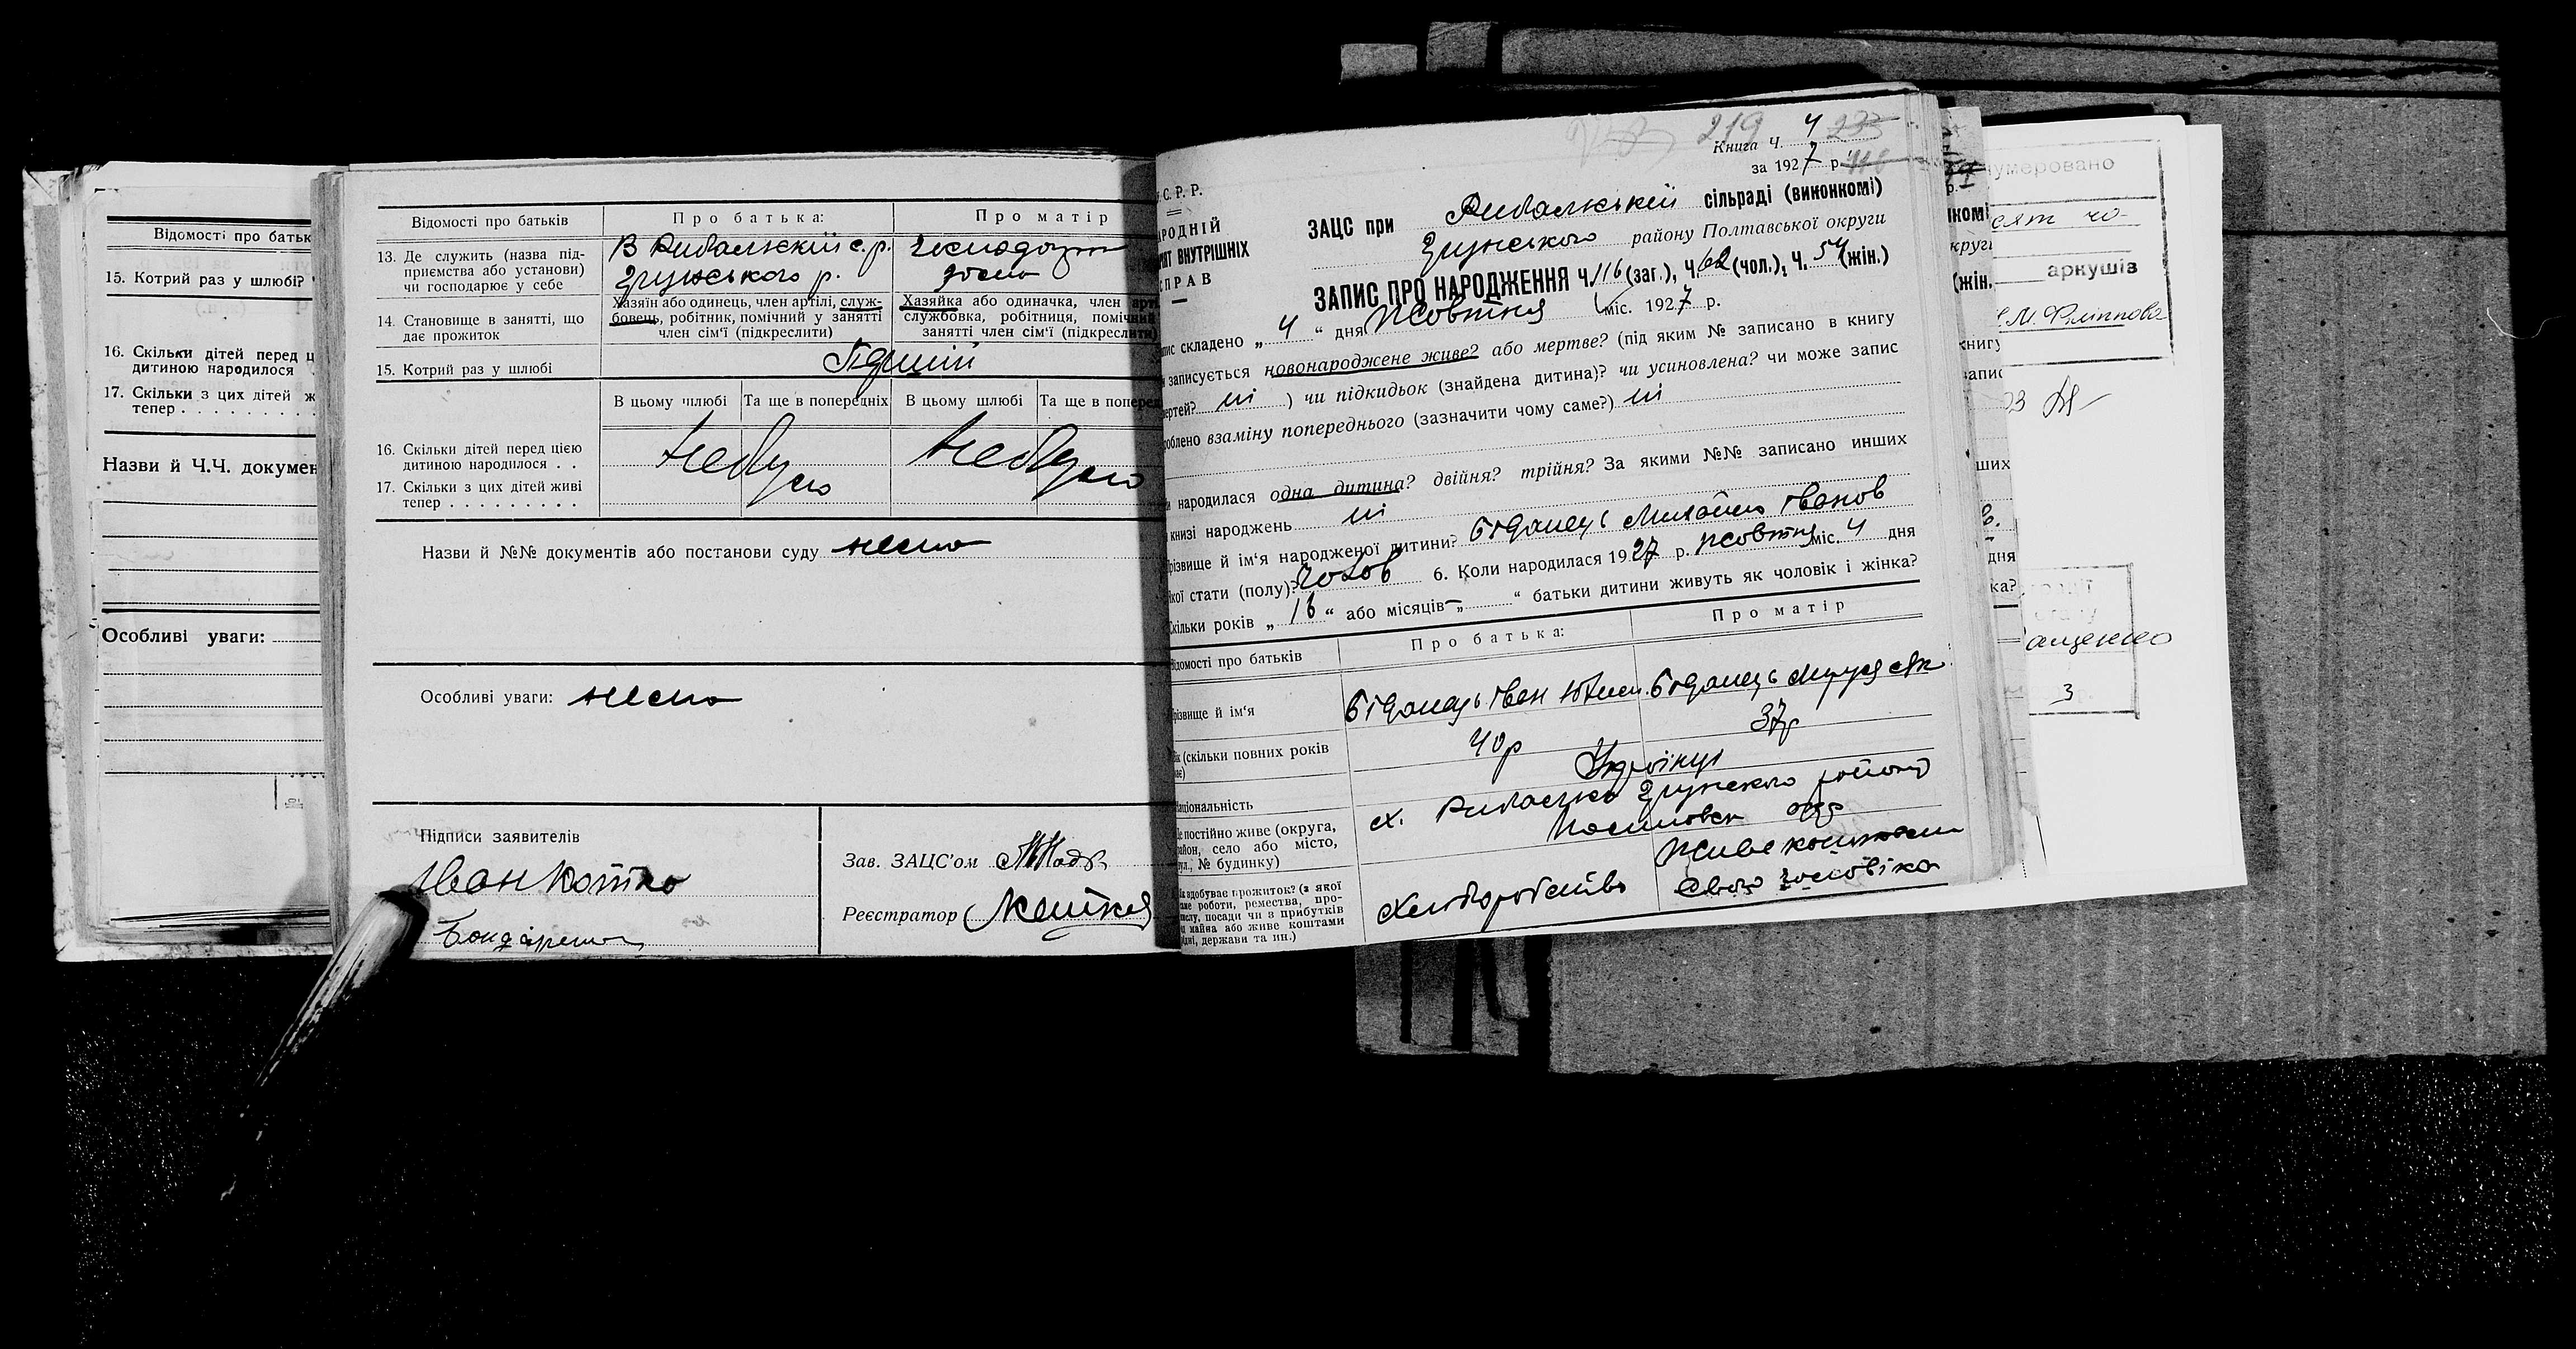 Відомості про батьк
15. Котрий раз у шлюбі?
16. Скільки дітей перед ц
дитиною народилося
17. Скільки з цих дітей ж
тепер . . . . . . . . .
Назви й Ч.Ч. докумен
Особливі уваги:
Відомості про батьків
Про батька:
Про матір
13. Де служить (назва під-
приємства або установи)
чи господарює у себе
В Рибальскій с. р.
Грунського р.
господарює
дома
14. Становище в занятті, що
дає прожиток
Хазяїн або одинець, член артілі, служ-
бовець, робітник, помічний у занятті
член сім'ї (підкреслити)
Хазяйка або одиначка, член арті
службовка, робітниця, помічний
занятті член сім'ї (підкреслити)
15. Котрий раз у шлюбі
Перший
В цьому шлюбі
Та ще в попередніх
В цьому шлюбі
Та ще в поперед
16. Скільки дітей перед цією
дитиною народилося . .
17. Скільки з цих дітей живі
тепер . . . . . . . . .
Не було
Не було
Назви й №№ документів або постанови суду нема
Особливі уваги: нема
Підписи заявителів
Іван Котко
Бондаренко
Зав. ЗАЦС'ом
Реєстратор
219 233
Книга Ч. 4
за 1927 р. 116
С. Р. Р.
РОДНІЙ
ЯТ ВНУТРІШНІХ
ПРАВ
ЗАЦС при Рибальській сільраді (виконкомі)
Грунського району Полтавської округи
ЗАПИС ПРО НАРОДЖЕННЯ Ч. 116 (заг.), Ч. 62 (чол.), Ч. 54 (жін.)
пис складено „ 4 “ дня Жовтня міс. 1927 р.
записується новонароджене живе? або мертве? (під яким № записано в книгу
ертей? ні ) чи підкидьок (знайдена дитина)? чи усиновлена? чи може запис
облено взаміну попереднього (зазначити чому саме?) ні
народилася одна дитина? двійня? трійня? За якими №№ записано инших
книзі народжень ні
різвище й ім'я народженої дитини? Біданець Михайло Іванов
кої стати (полу)? чолов 6. Коли народилася 1927 р. жовтня міс. 4 дня
кільки років „ 16 “ або місяців „ – “ батьки дитини живуть як чоловік і жінка?
ідомості про батьків
Про батька:
Про матір
різвище й ім'я
Біданець Іван
Біданець
ік (скільки повних років
ає)
40р
37р
аціональність
Українці
е постійно живе (округа,
айон, село або місто,
ул., № будинку)
х. Рибалько Грунского району
Полтавськ окр
к здобуває прожиток? (з якої
аме роботи, ремества, про-
ислу, посади чи з прибутків
майна або живе коштами
ідні, держави та ин.)
Хліборобство
Живе коштами
свого чоловіка
умеровано
аркушів
Філіппова
ащенко
3